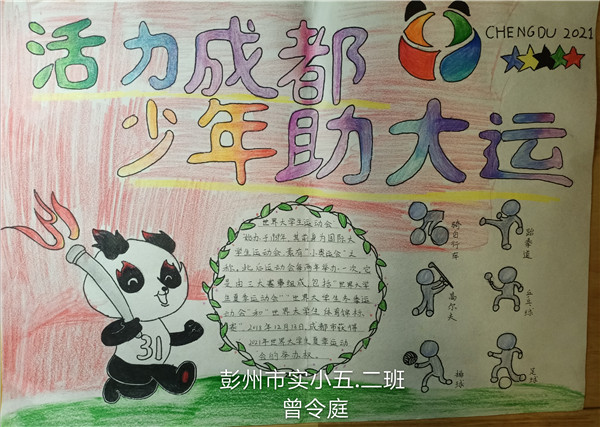 活力成都
CHENGDU 2021
少年助大运
世界大学生运动会
始办于1959年,其前身为国际大
学生运动会,素有"小奥运会"之
称。此后运动会每两年举办一次,它
是由三大赛事组成,包括"世界大学
生夏季运动会""世界大学生冬季运
动会"和"世界大学生体育锦标
赛"。2018年12月18日,成都市获得
2021年世界大学生夏季运动
会的举办权。
31
骑自行车
跆拳道
高尔夫
乒乓球
排球
足球
彭州市实小五.二班
曾令庭